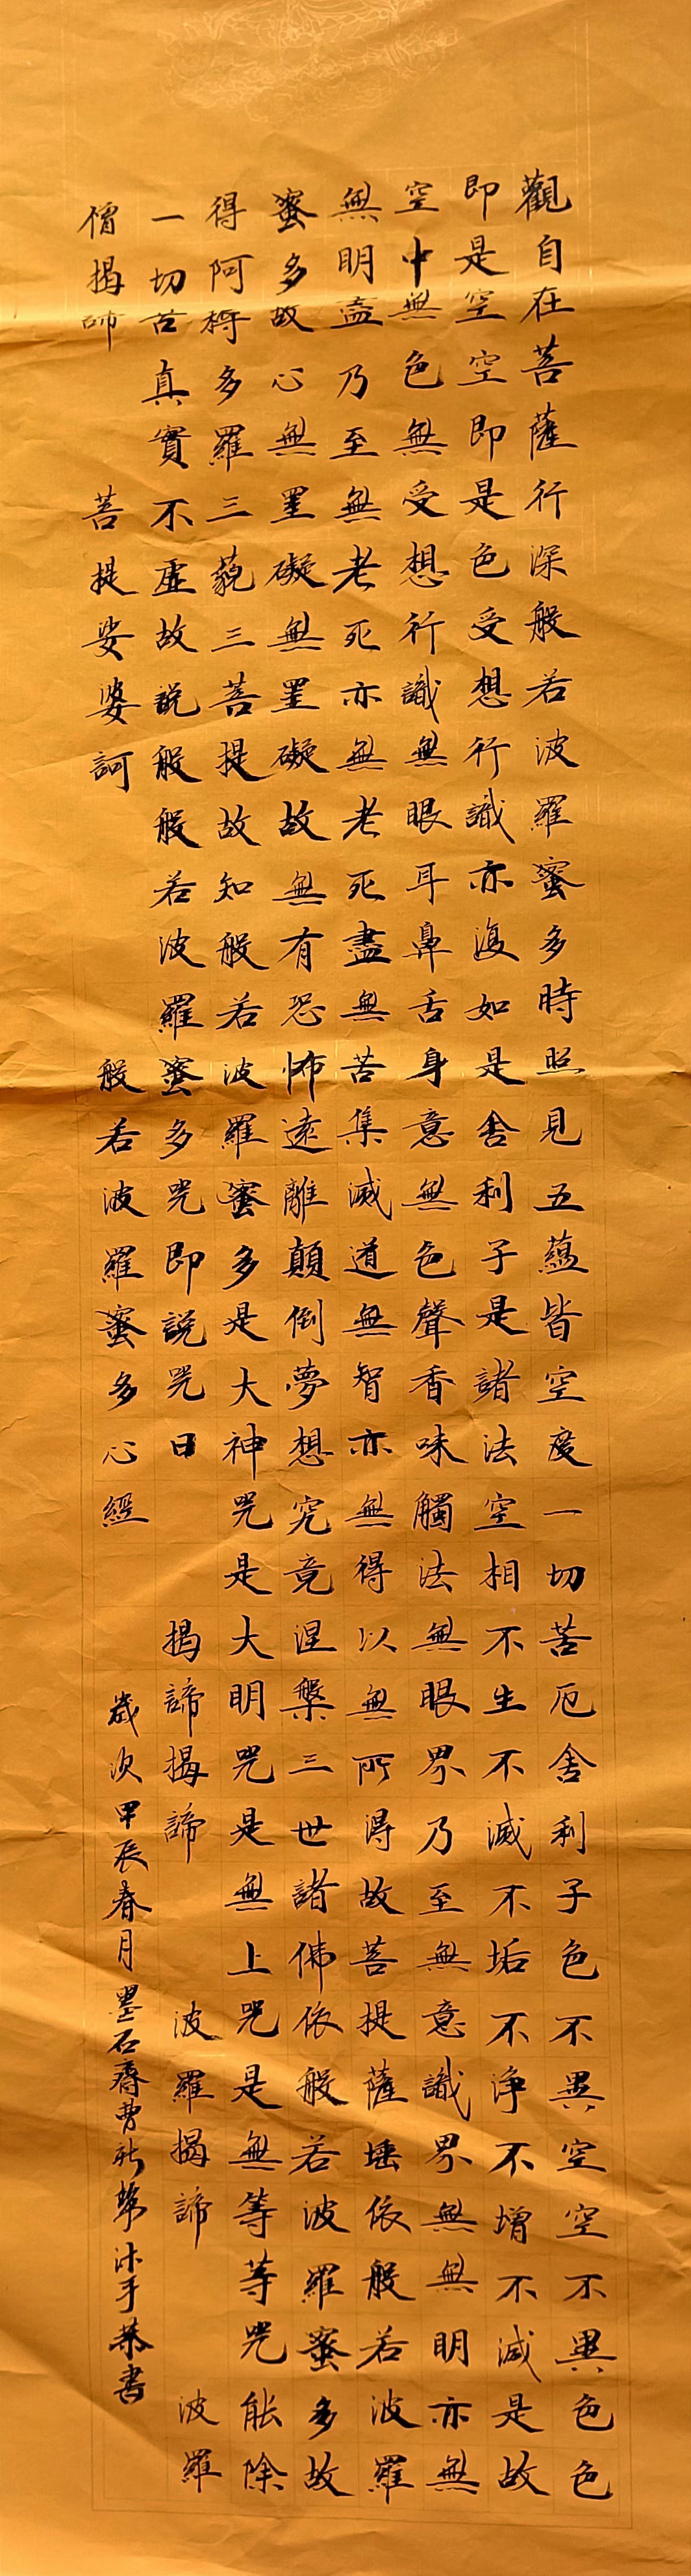 觀自在菩薩行深般若波羅蜜多時照見五蘊皆空度一切苦厄舍利子色不異空空不異色色
即是空空即是色受想行識亦復如是舍利子是諸法空相不生不滅不垢不淨不增不減是故
空中無色無受想行識無眼耳鼻舌身意無色聲香味觸法無眼界乃至無意識界無無明亦無
無明盡乃至無老死亦無老死盡無苦集滅道無智亦無得以無所得故菩提薩埵依般若波羅
蜜多故心無罣礙無罣礙故無有恐怖遠離顛倒夢想究竟涅槃三世諸佛依般若波羅蜜多故
得阿耨多羅三藐三菩提故知般若波羅蜜多是大神咒是大明咒是無上咒是無等等咒能除
一切苦真實不虛故說般般若波羅蜜多咒即說咒曰 揭諦揭諦 波羅揭諦 波羅
僧揭諦 菩提娑婆訶 般若波羅蜜多心經 歲次甲辰春月墨石齋曹 沐手恭書